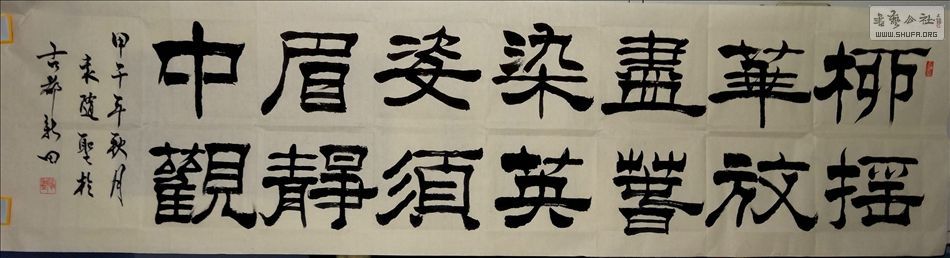 柳摇
華放
盡
染英
姿須
眉靜
中觀
甲午年秋月
袁隨聖於
古都新田
書藝公社
WWW.SHUFA.ORG